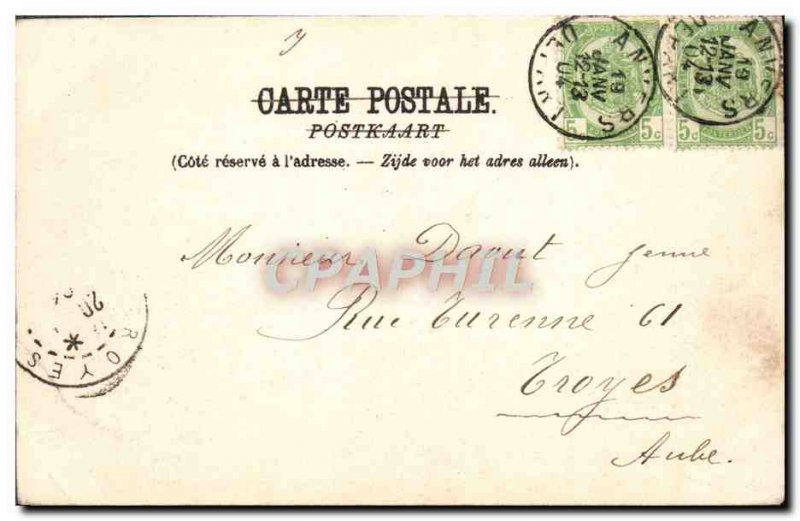 CARTE POSTALE.
POSTKAART
(Côté réservé à l'adresse. — Zijde voor het adres alleen).
ANVERS DEPART
19 JANV 12-13 04
ANVERS DEPART
19 JANV 12-13 04
5c 5c 5c 5c
Monsieur Daout jeune
CPAPHIL
Rue Turenne 61
Troyes
Aube.
TROYES
20